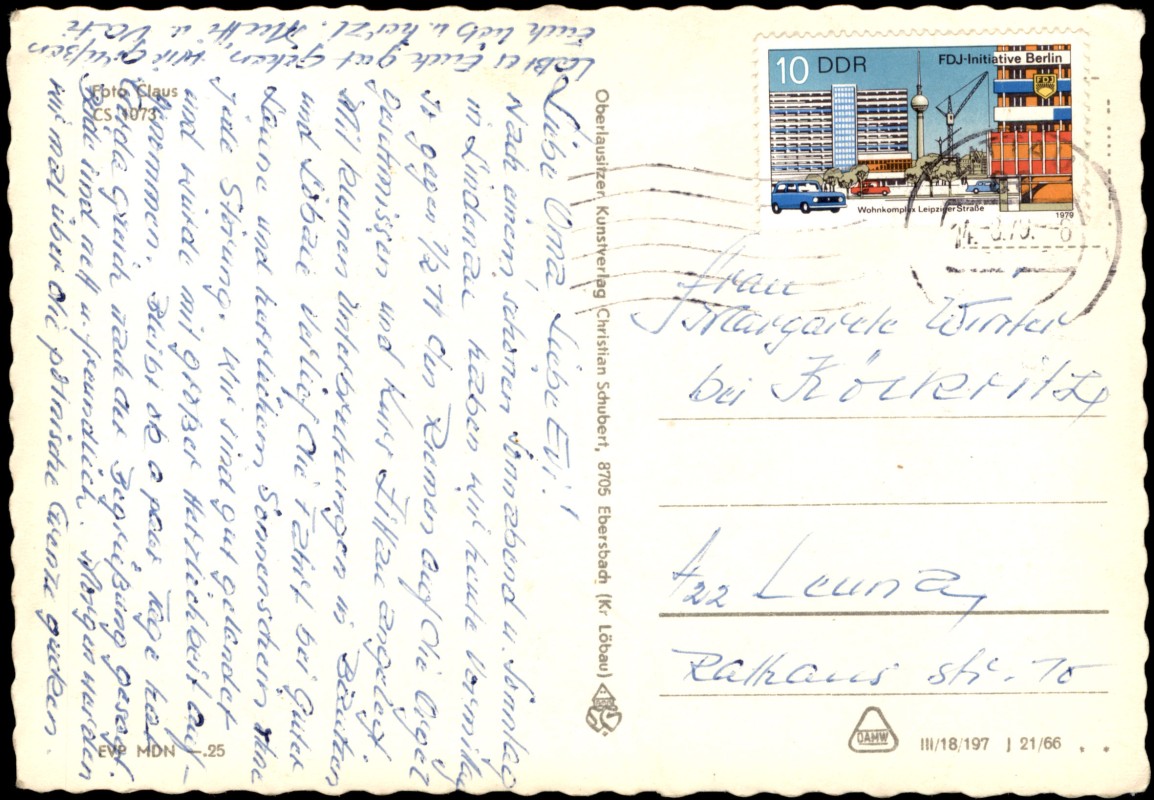 Liebe Oma, Liebe Evi!
Nach einem schönen Sonnabend u. Sonntag
in Lindenau haben wir heute Vormittag
so gegen 1/2 11 Uhr Roman auf die
geschmissen und Kurs Zittau angelegt.
Mit kleinen Unterbrechungen in Bautzen
und Löbau verlief die Fahrt bei guter
Laune und herrlichem Sonnenschein ohne
jede Störung. Wir sind gut gelandet
und wurde mit großer Herzlichkeit auf-
genommen. Bleibt ok a paar Tage hat
Gerda gleich nach der Begrüßung gesagt.
Beide sind nett u. freundlich. Morgen werden
wir mal über die polnische Grenze gucken.
Laßt es Euch gut gehen, wir grüßen
Euch lieb u. herzl. Mutti u. Vati
Foto Claus
CS 1073
EVP MDN —.25
Oberlausitzer Kunstverlag Christian Schubert, 8705 Ebersbach (Kr. Löbau)
10 DDR
FDJ-Initiative Berlin
FDJ
Wohnkomplex Leipziger Straße
1979
Frau
Margarete Winter
bei Köckritz
422 Leuna
Rathausstr. 10
DAMW
III/18/197 J 21/66